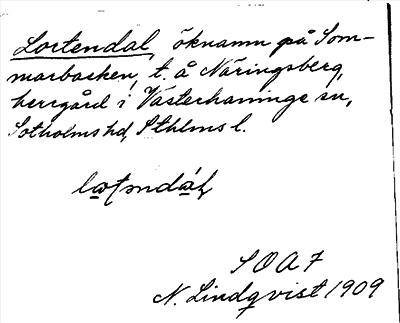 Lortendal, öknamn på Som-
marbacken, t. å Näringsberg,
herrgård i Västerhaninge sn,
Sotholms hd, Sthlms l.
S O A 7
N. Lindqvist 1909